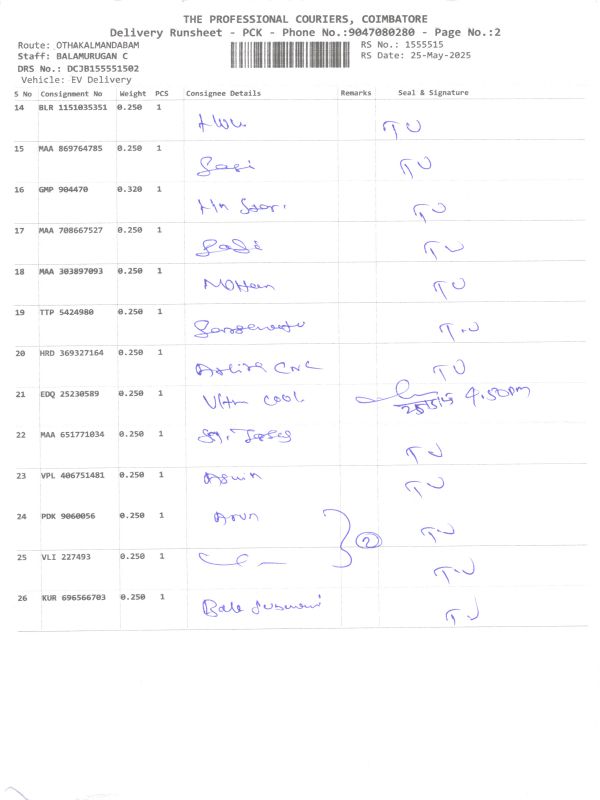 THE PROFESSIONAL COURIERS, COIMBATORE
Delivery Runsheet - PCK - Phone No.:9047080280 - Page No.:2
Route: OTHAKALMANDABAM RS No.: 1555515
Staff: BALAMURUGAN C RS Date: 25-May-2025
DRS No.: DCJB155551502
Vehicle: EV Delivery
S No Consignment No Weight PCS Consignee Details Remarks Seal & Signature
14 BLR 1151035351 0.250 1
15 MAA 869764785 0.250 1 Sasi
16 GMP 904470 0.320 1
17 MAA 708667527 0.250 1 Sasi
18 MAA 303897093 0.250 1
19 TTP 5424980 0.250 1
20 HRD 369327164 0.250 1 CNC
21 EDQ 25230589 0.250 1 COOL 4.50pm
22 MAA 651771034 0.250 1
23 VPL 406751481 0.250 1 Aswin
24 PDK 9060056 0.250 1 Arun
25 VLI 227493 0.250 1 2
26 KUR 696566703 0.250 1